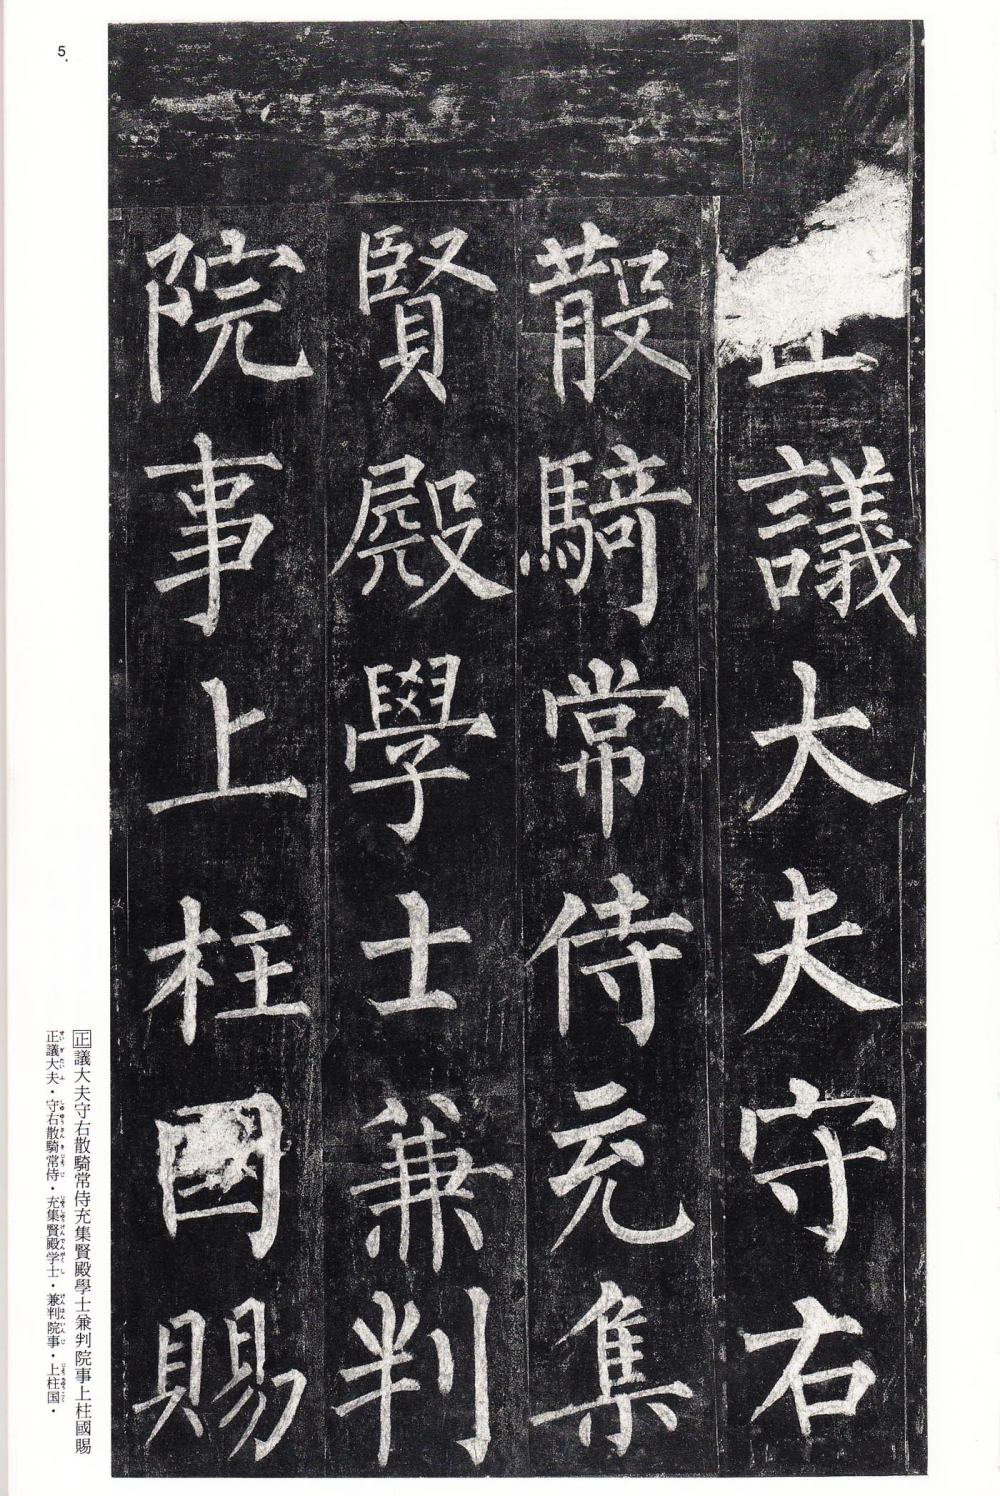 5.
正議大夫守右
散騎常侍充集
賢殿學士兼判
院事上柱國賜
正議大夫守右散騎常侍充集賢殿學士兼判院事上柱國賜
正議大夫・守右散騎常侍・充集賢殿学士・兼判院事・上柱国・